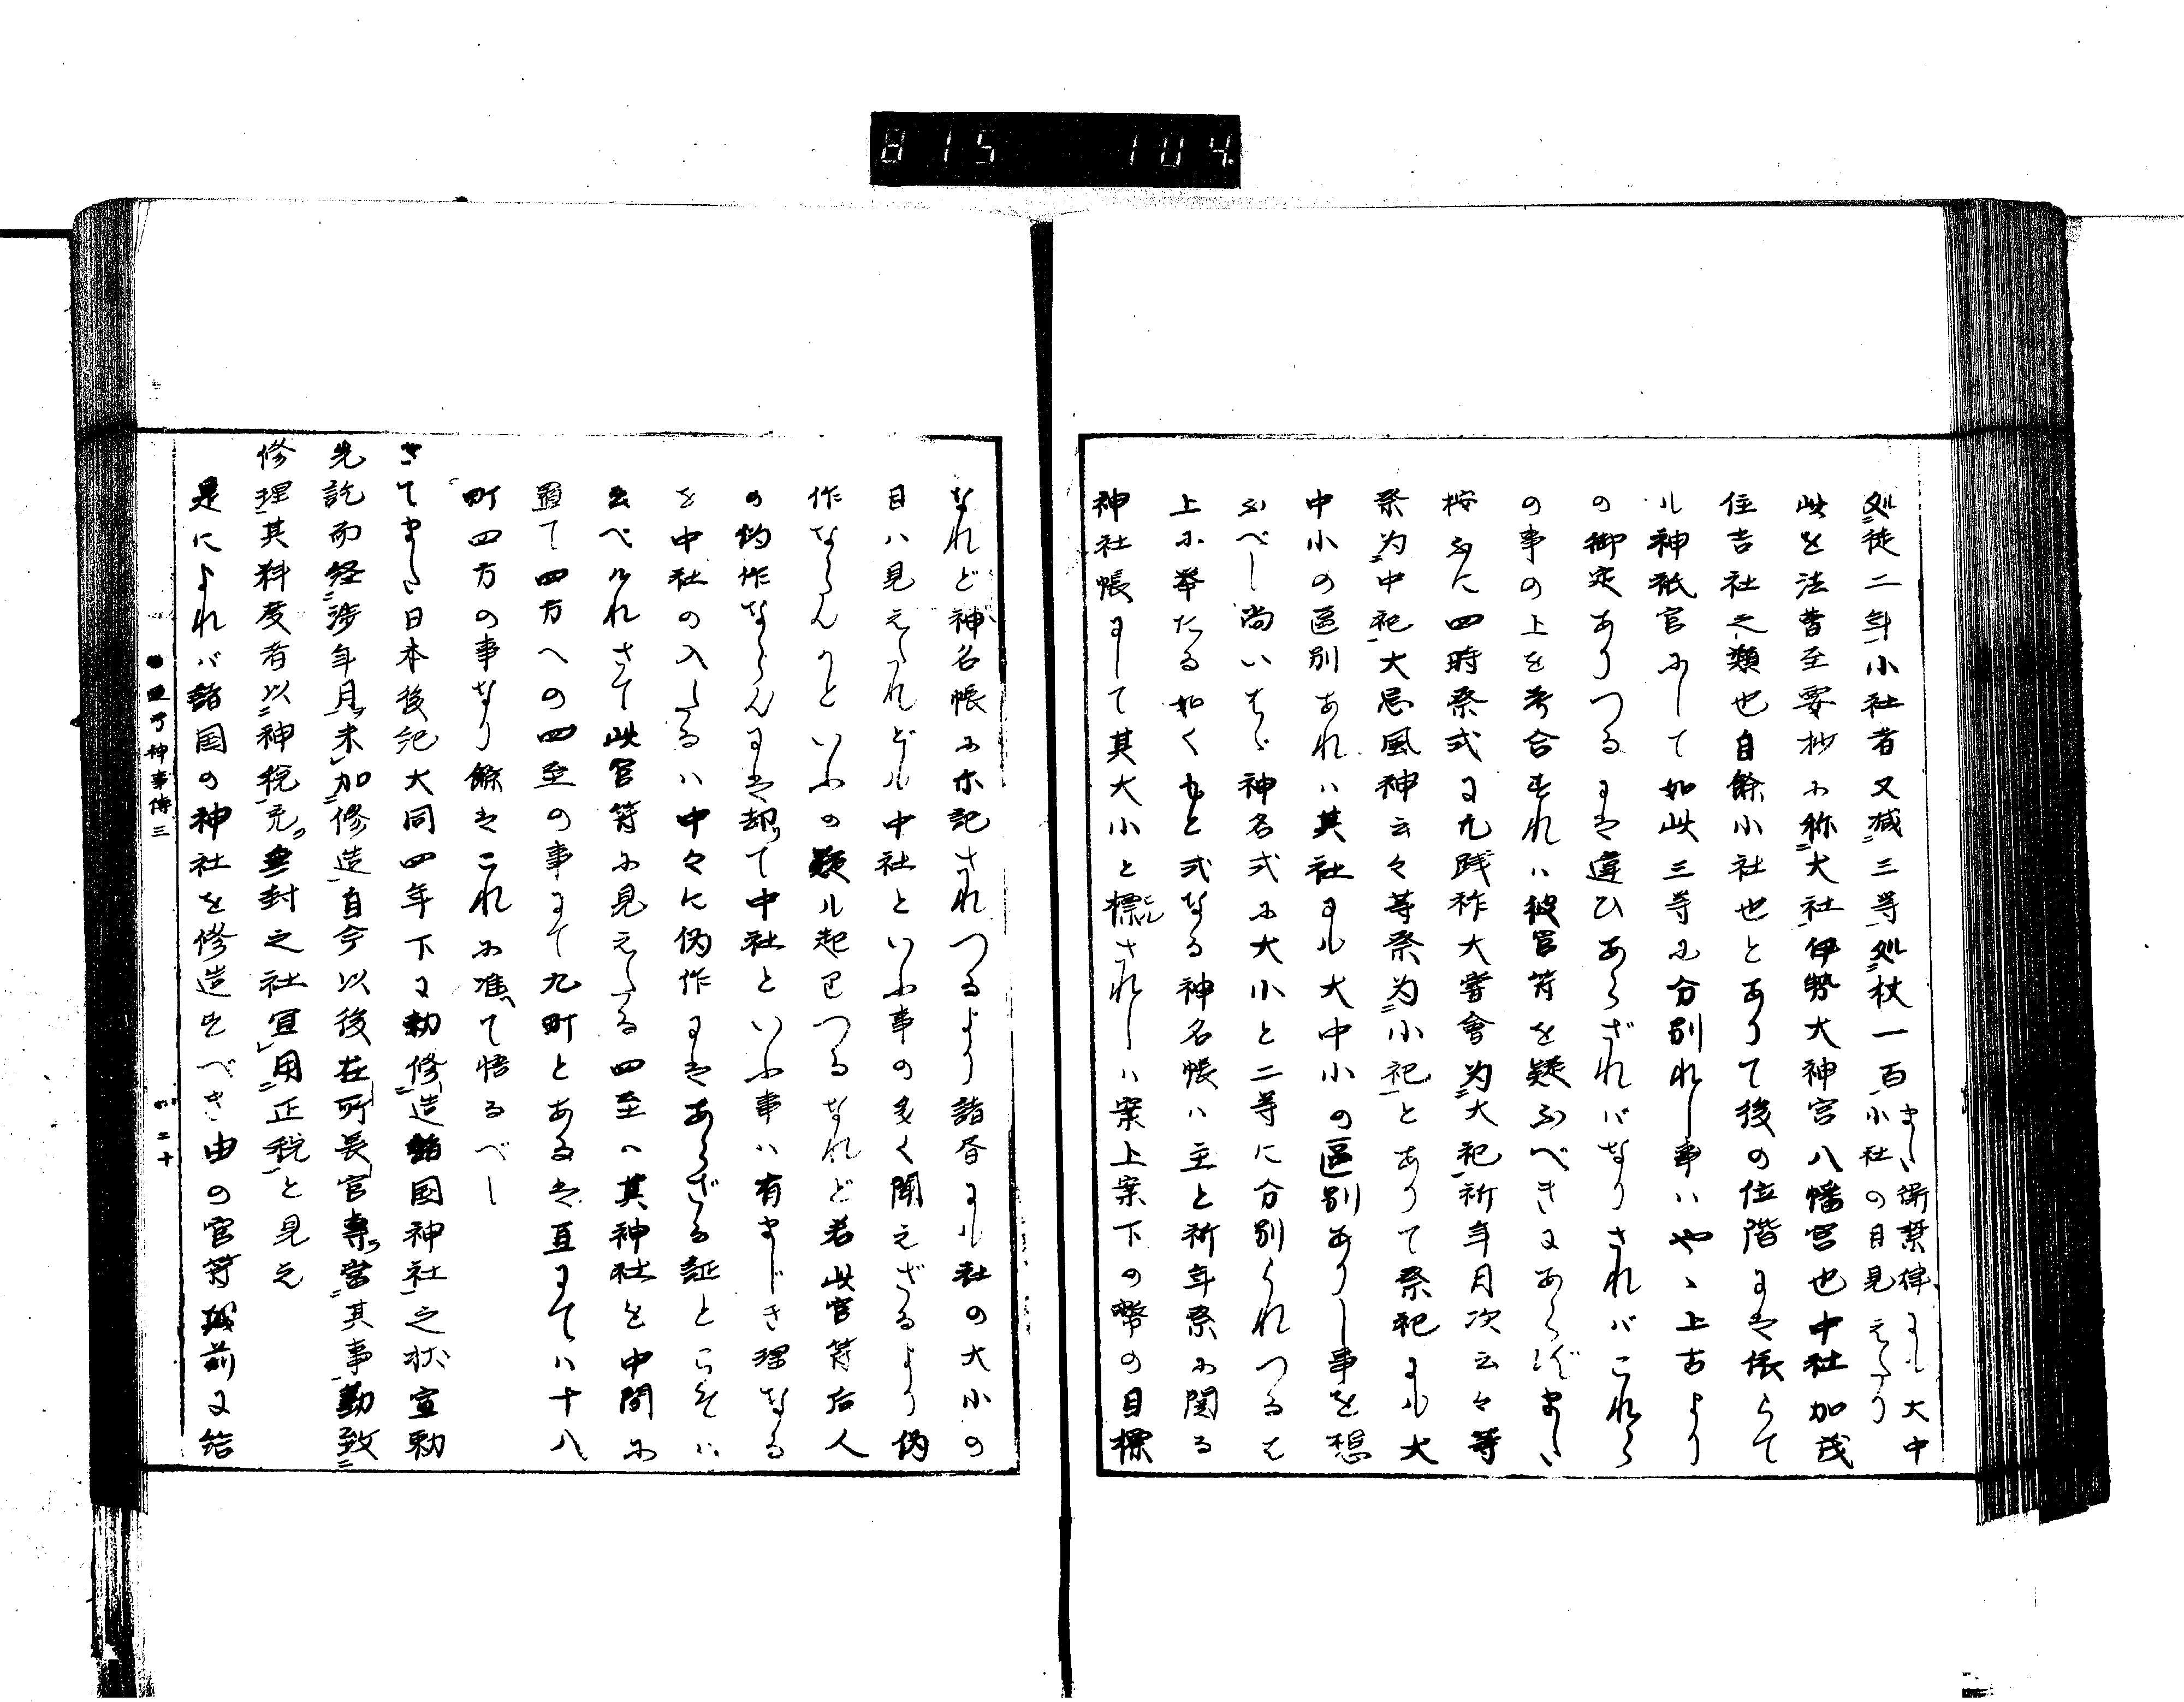 815 104.
処徒二年小社者又減三等処杖一百また衛禁律にも大中
小社の目見えたり
此を法曹至要抄に称大社伊勢大神宮八幡宮也中社加茂
住吉社之類也自餘小社也とありて後の位階にて張らて
ル神祇官にして如此三等に分別れし事ハやゝ上古より
の御定ありつるにて違ひあらざれバなりされバこれら
の事の上を考合すれハ彼官符を疑ふべきにあらずまた
按ふに四時祭式に凡践祚大嘗會為大祀祈年月次云々等
祭為中祀大忌風神云々等祭為小祀とありて祭祀にも大
中小の區別あれハ其社にも大中小の區別ありし事を想
ふべし尚いはゞ神名式に大小と二等に分別られつるは
上に挙たる如くもと式なる神名帳ハ主と祈年祭に関る
神社帳にして其大小と標されしハ案上案下の幣の目標
なれど神名帳に亦記されつるより諸房にも社の大小の
目ハ見えたれども中社といふ事の多く聞えざるより偽
作ならんかといふの疑も起りつるなれど若此官符后人
の偽作ならんには却て中社といふ事ハ有まじき理なる
を中社の入たるハ中々に偽作にはあらざる証とこそハ
云べけれさて此官符に見えたる四至ハ其神社を中間に
置て四方への四至の事にて九町とあるは直にてハ十八
町四方の事なり餘はこれに准て悟るべし
さてまた日本後紀大同四年下に勅修造諸国神社之状宣勅
先訖而経渉年月未加修造自今以後在所長官専当其事勤致
修理其料度者以神税充無封之社宜用正税と見え
是によれバ諸国の神社を修造すべき由の官符越前に給
神事傳三
二十